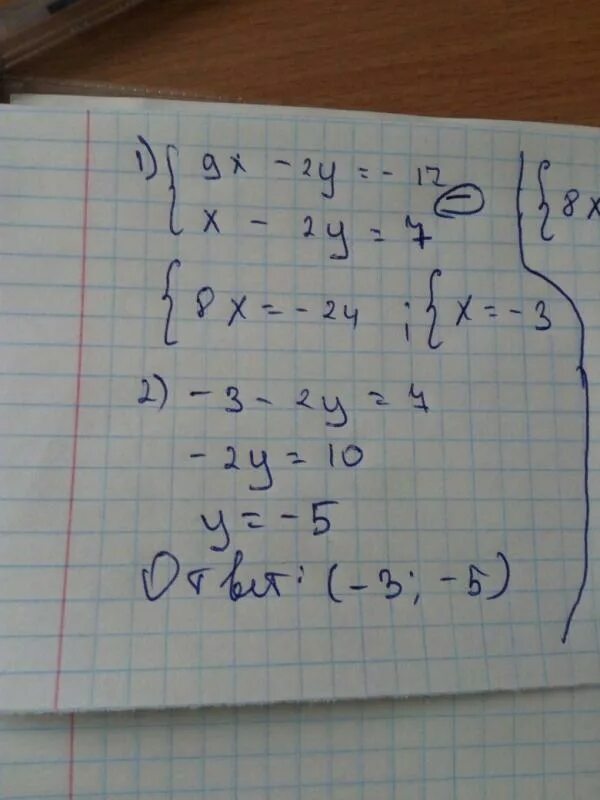 1) { 9x - 2y = - 17
{ x - 2y = 7 (-)
{ 8x = - 24 ; { x = - 3
2) - 3 - 2y = 7
- 2y = 10
y = - 5
Ответ: (- 3; - 5)
{ 8x